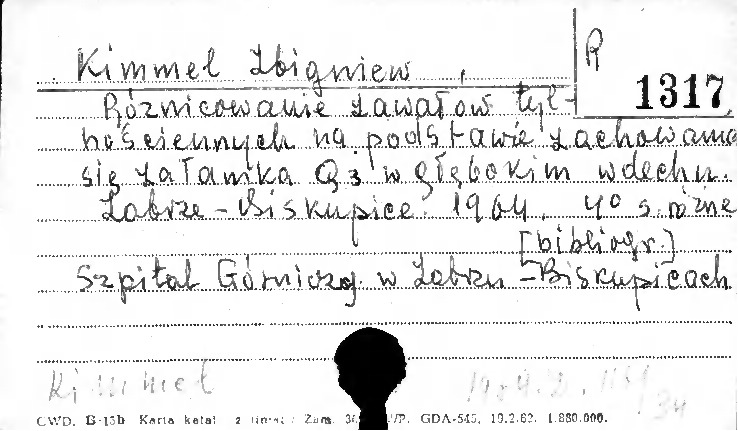 R
1317
Kimmel Zbigniew,
Różnicowanie zawałów tyl-
nościennych na podstawie zachowania
się załamka Q3 w głębokim wdechu.
Zabrze-Biskupice. 1964. 4° s. różne
[bibliogr.]
Szpital Górniczy w Zabrzu-Biskupicach
Kimmel
CWD. B-15b Karta katal. GDA-545, 19.2.62. 1.880.000.